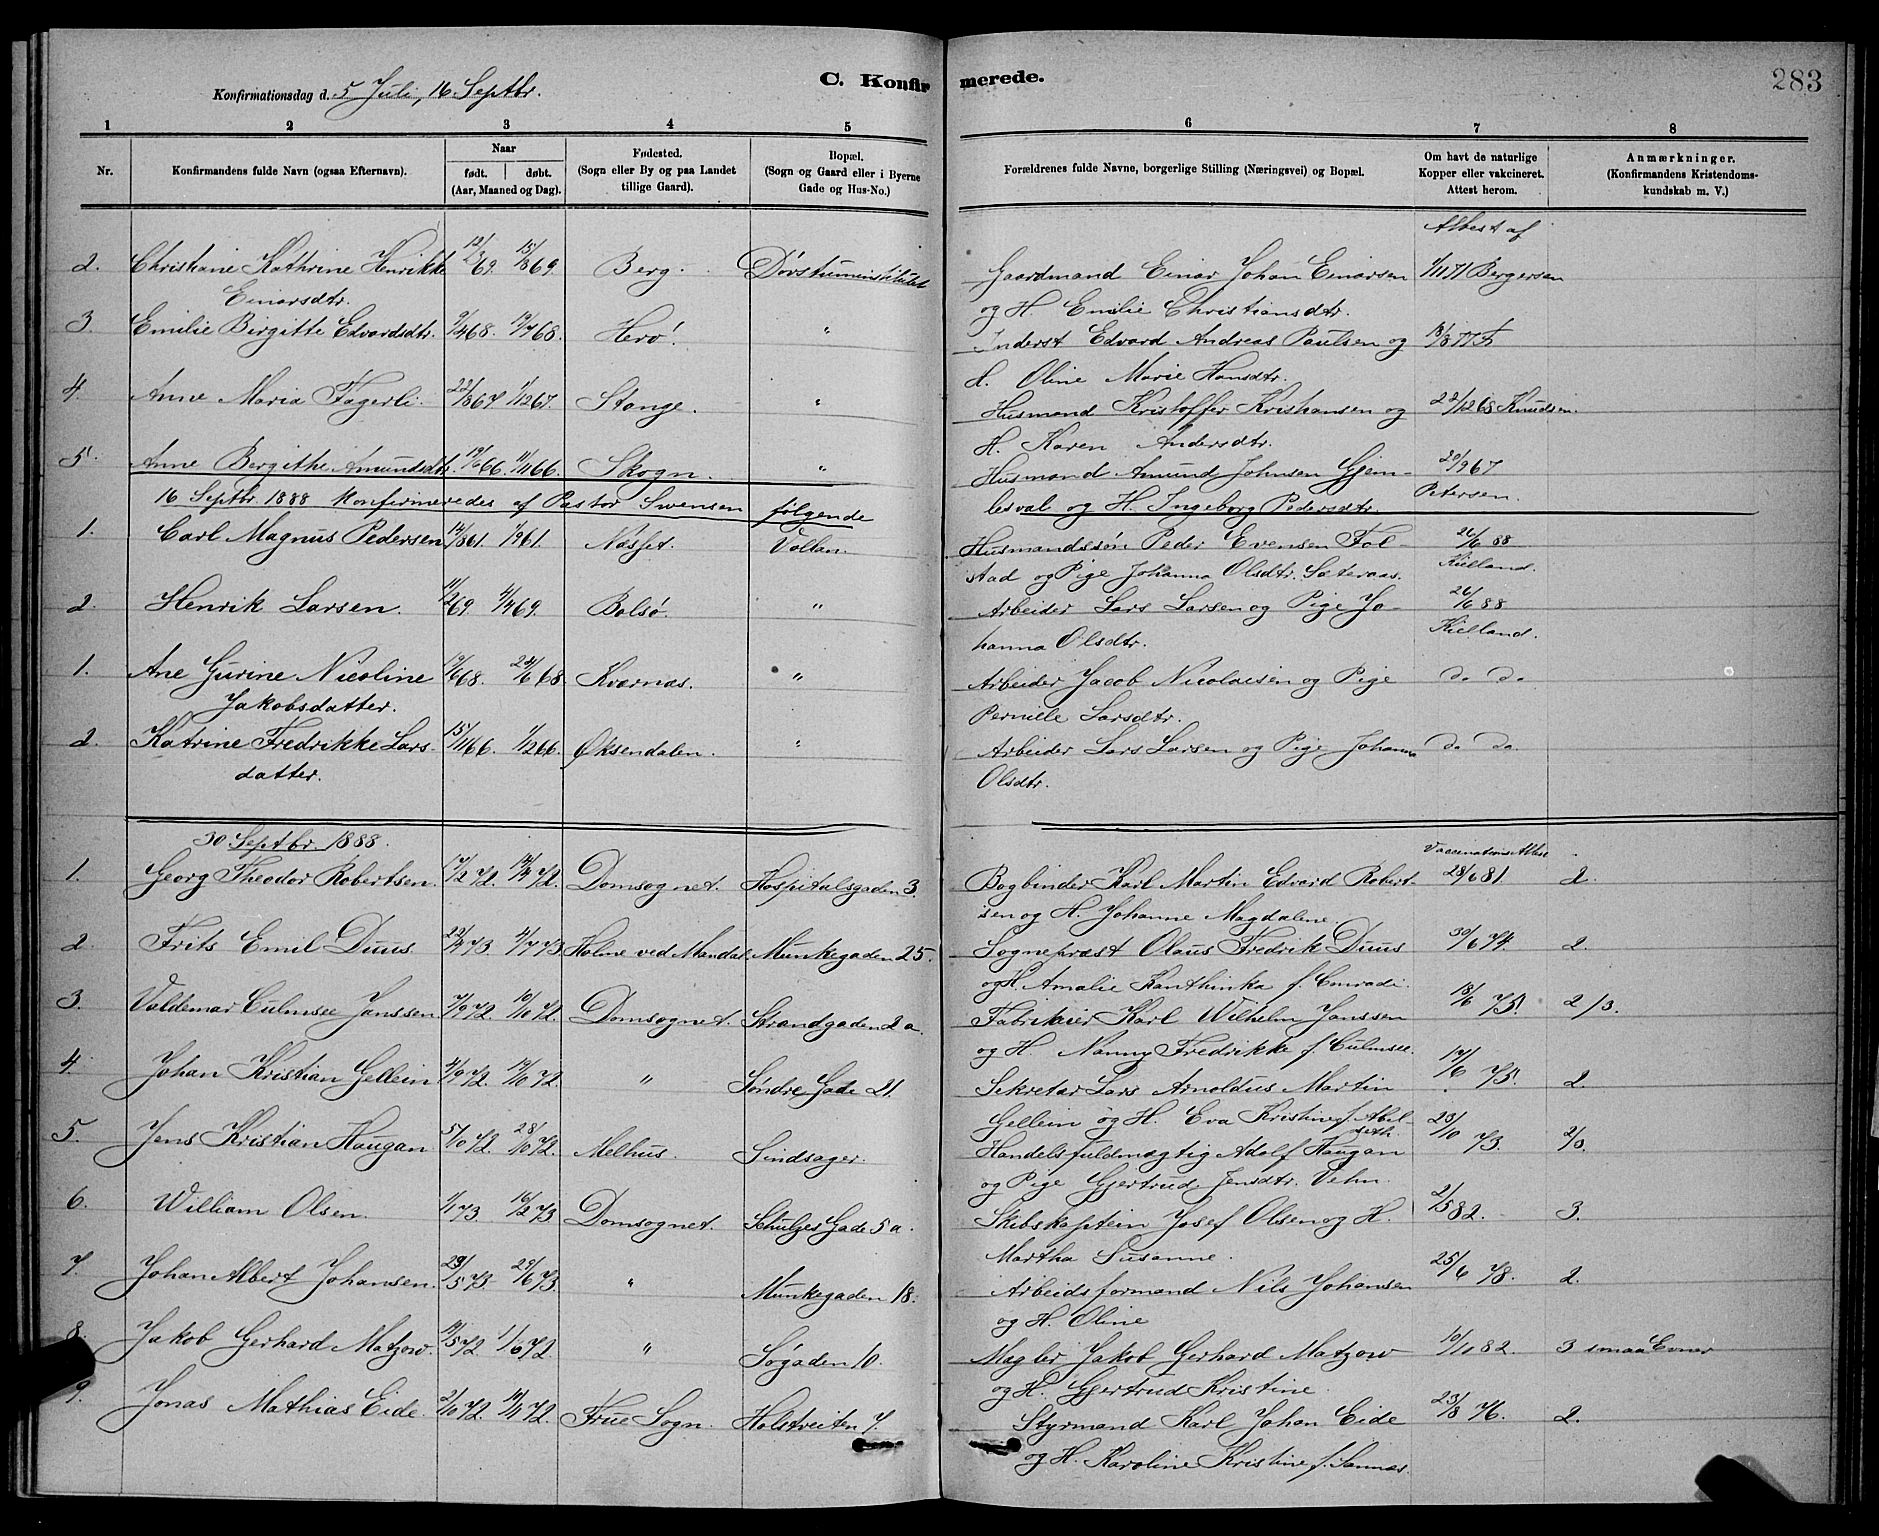 C. Konfirmerede.
283
Konfirmationsdag d. 5 Juli, 16 Septbr.
1 2 3 4 5 6 7 8
Nr.
Konfirmandens fulde Navn (ogsaa Efternavn).
Naar
født. døbt.
(Aar, Maaned og Dag).
Fødested.
(Sogn eller By og paa Landet
tillige Gaard).
Bopæl.
(Sogn og Gaard eller i Byerne
Gade og Hus-No.)
Forældrenes fulde Navne, borgerlige Stilling (Næringsvei) og Bopæl.
Om havt de naturlige
Kopper eller vakcineret.
Attest herom.
Anmærkninger.
(Konfirmandens Kristendoms-
kundskab m. V.)
Attest af
2. Christiane Kathrine Henrikke 69. 15/8 69. Berg. Døvstumeinstitutet Gaardmand Einar Johan Einarsen 1/11 71 Bergersen
Einarsdtr. og H. Emilie Christiansdtr.
3. Emilie Birgitte Edvardsdtr. 9/4 68. 12/7 68. Herø. " Inderst Edvard Andreas Paulsen og
H. Oline Marie Hansdtr.
4. Anne Maria Fagerli. 22/8 67. 1/12 67. Stange. " Husmand Kristoffer Kristiansen og 22/12 68 Knudsen.
H. Karen Andersdtr.
5. Anne Bergithe Amundsdtr. 66. 11/4 66. Skogn. " Husmand Amund Johnsen Gjem- 20/9 67
lesval og H. Ingeborg Pedersdtr. Petersen.
16 Septbr. 1888 konfirmeredes af Pastor Svensen følgende
1. Carl Magnus Pedersen 14/8 61. 1/9 61. Nesset. Vollan. Husmandssøn Peder Evensen Fol- 26/6 88
stad og Pige Johanna Olsdtr. Sæteraas. Kielland.
2. Henrik Larsen. 11/2 69. 4/4 69. Bolsø. " Arbeider Lars Larsen og Pige Jo- 26/6 88
hanna Olsdtr. Kielland.
1. Ane Gurine Nicoline 68. 24/6 68. Kvernæs. " Arbeider Jacob Nicolaisen og Pige do do
Jakobsdatter. Pernille Larsdtr.
2. Katrine Fredrikke Lars- 15/11 66. 1/12 66. Øksendalen. " Arbeider Lars Larsen og Pige Johanna do do.
datter. Olsdtr.
30 Septbr. 1888. Vaccinations Attest
1. Georg Theodor Robertsen. 17/2 72. 14/4 72. Domsognet. Hospitalsgaden 3. Bogbinder Karl Martin Edvard Robert- 28/6 81. 2.
sen og H. Johanne Magdalene.
2. Frits Emil Duus. 22/4 73 4/7 73 Holme ved Mandal Munkegaden 25. Sognepræst Olaus Fredrik Duus 30/6 74. 2.
og H. Amalie Kanthinka f. Conradi.
3. Valdemar Culmsee Janssen 7/9 72. 10/10 72. Domsognet. Strandgaden 2 a. Fabrikeier Karl Wilhelm Janssen 18/6 75. 2/3.
og H. Nanny Fredrikke f. Culmsee.
4. Johan Kristian Gellein 4/9 72. 13/10 72. " Søndre Gade 21. Sekretær Lars Arnoldus Martin 17/6 75. 2.
Gellein og H. Eva Kristine f. Abel-
seth.
5. Jens Kristian Haugan 5/10 72. 28/10 72. Melhus. Sindsager. Handelsfuldmægtig Adolf Haugan 23/10 73. 2/3.
og Pige Gjertrud Jensdtr. Vehn.
6. William Olsen. 1/1 73. 16/2 73 Domsognet. Schultzes Gade 5 a. Skibskaptein Josef Olsen og H. 2/5 82. 3.
Martha Susanne.
7. Johan Albert Johansen. 29/5 73. 29/6 73. " Munkegaden 18. Arbeidsformand Nils Johansen 25/6 78. 2.
og H. Oline
8. Jakob Gerhard Matzow. 14/5 72. 1/6 72. " Søgaden 10. Mægler Jakob Gerhard Matzow 10/10 82. 3 smaa Evner
og H. Gjertrud Kristine.
9. Jonas Mathias Eide. 2/10 72. 14/11 72. Frue Sogn. Holstveiten 7. Styrmand Karl Johan Eide 23/8 76. 2.
og H. Karoline Kristine f. Sannæs.